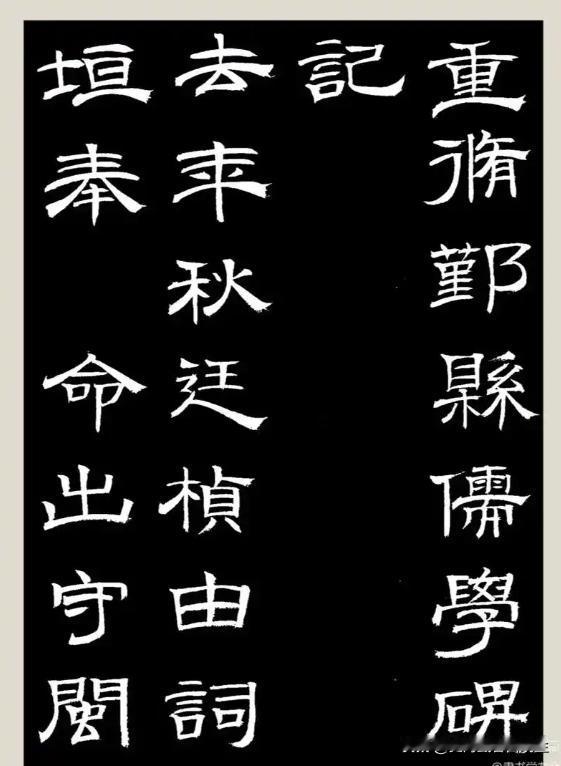 重脩鄞縣儒學碑
記
去年秋廷楨由詞
垣奉 命出守閩